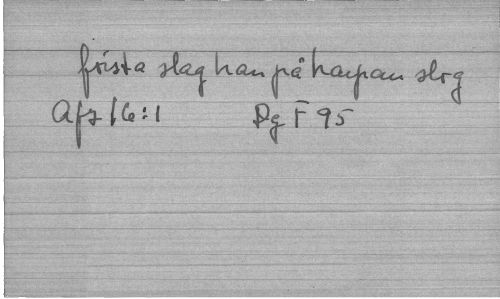 första slag han på harpan slog
Afz 16:1 Dg F 95